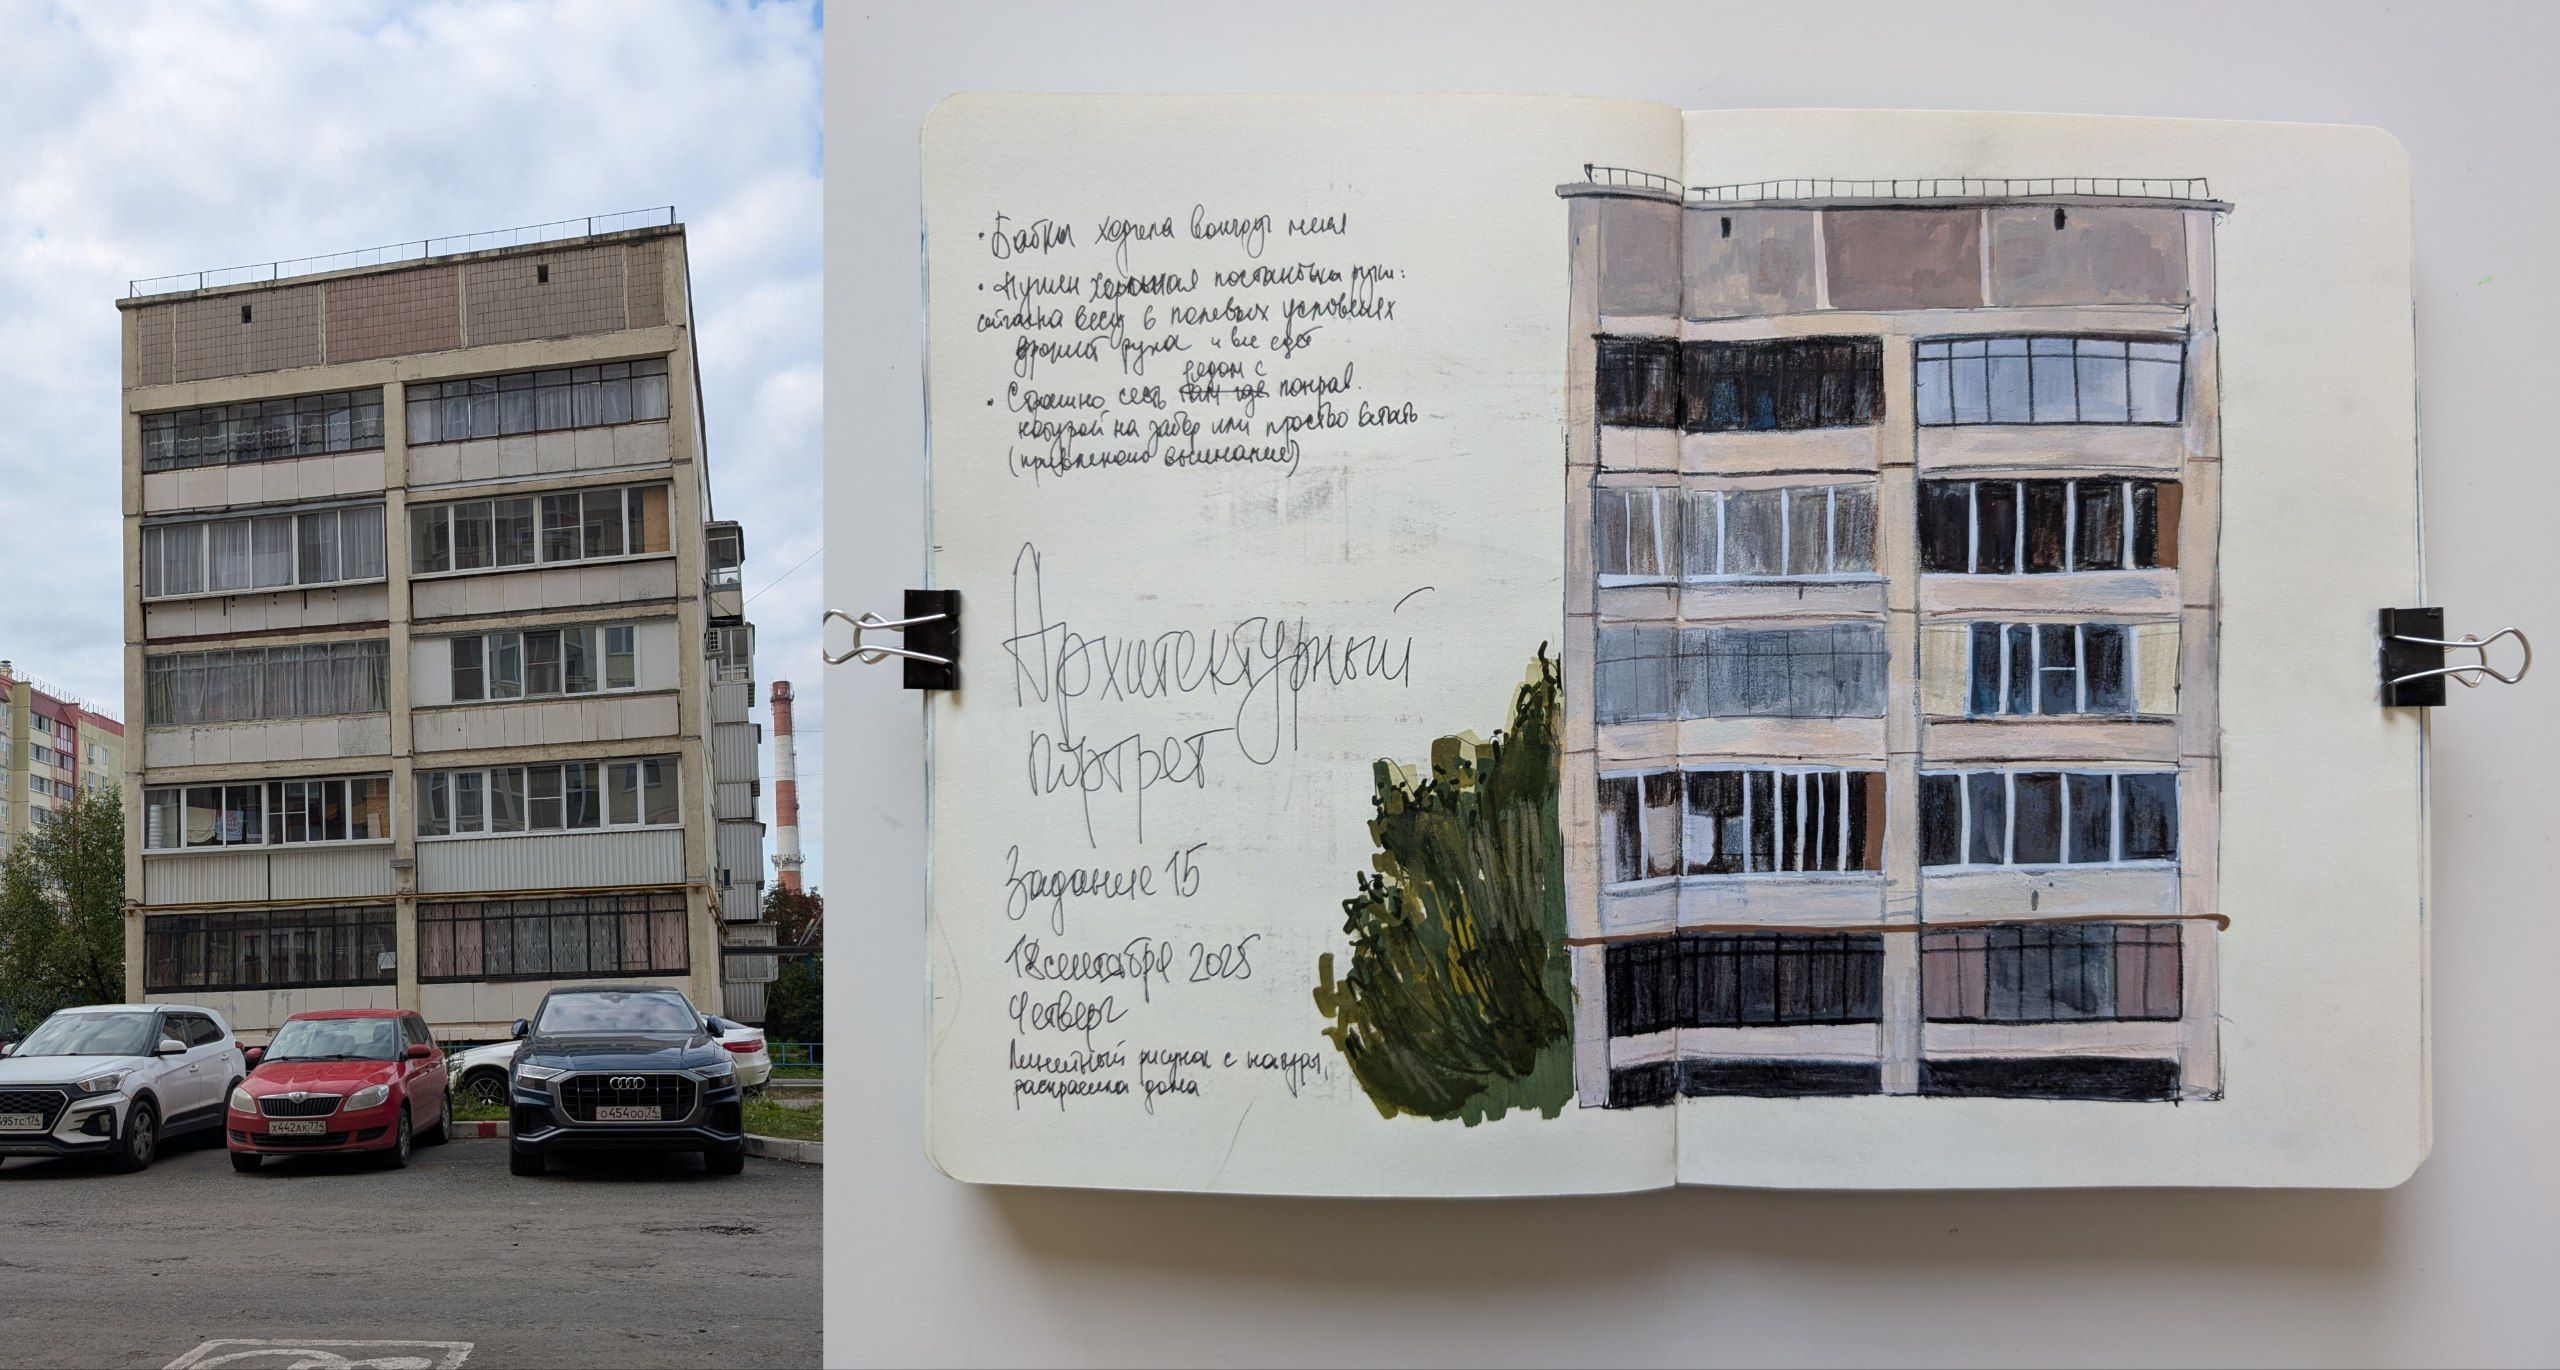 495ТС 174
Х442АК 774
О454ОО 74
• Бабки ходила вокруг меня
• Нужен хорошая постановка руки:
весу в полевых условиях
дрожит рука и все едет
рядом с
• Страшно сесть там где понрав.
натурой на забор или просто встать
(привлекаю внимание)
Архитектурный
портрет
Задание 15
18 сентября 2025
Четверг
Линейный рисунок с натуры,
раскраска дома